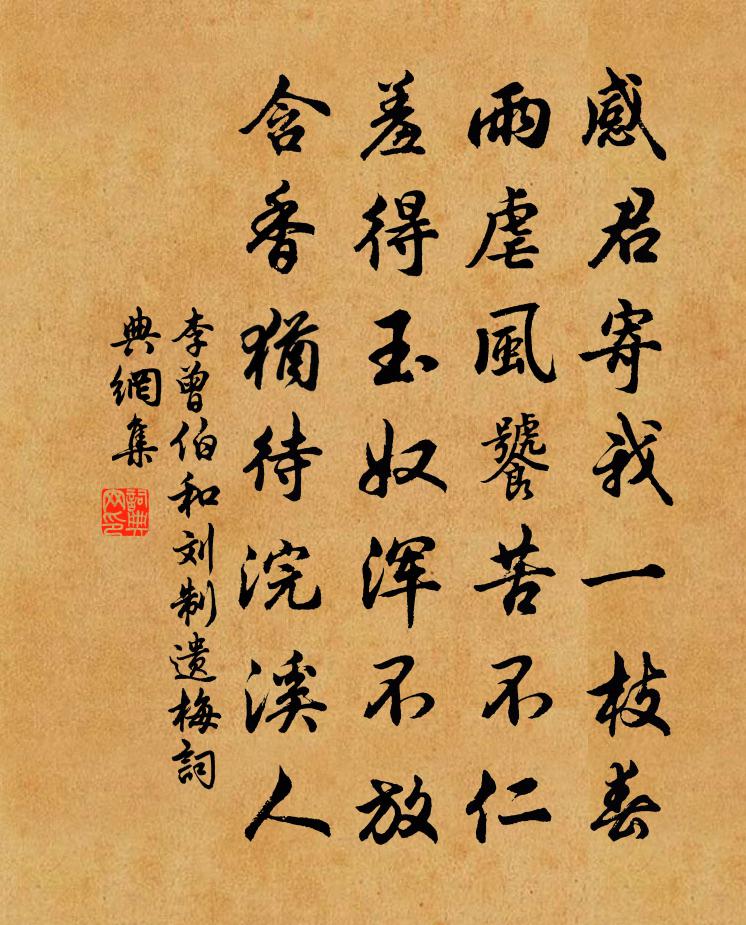 感君寄我一枝春
雨虐風饕苦不仁
羞得玉奴浑不放
含香猶待浣溪人
李曾伯和刘制遗梅詞
典網集
詞典
网印